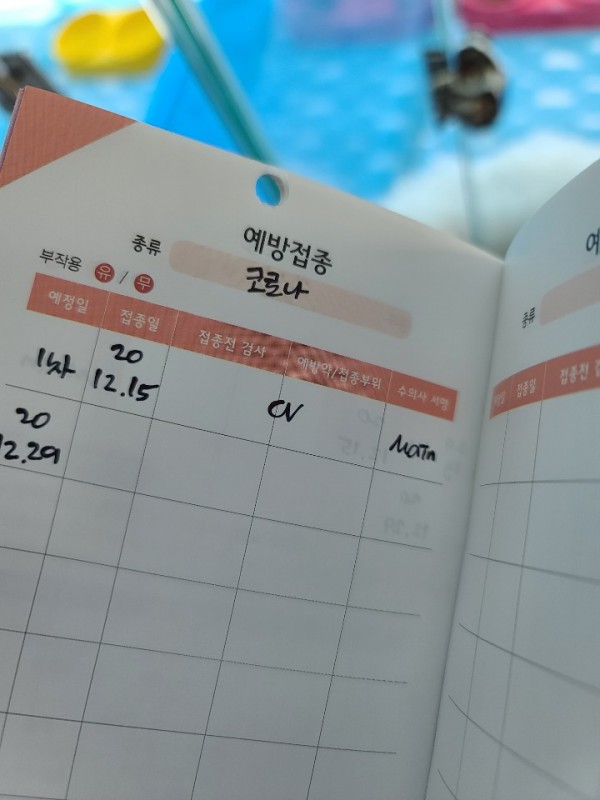 예방접종
종류 코로나
부작용 유 / 무
예정일 접종일 접종전 검사 예방약/접종부위 수의사 서명
1차 20 12.15 CV
20 12.29
예
종류
접종일 접종전